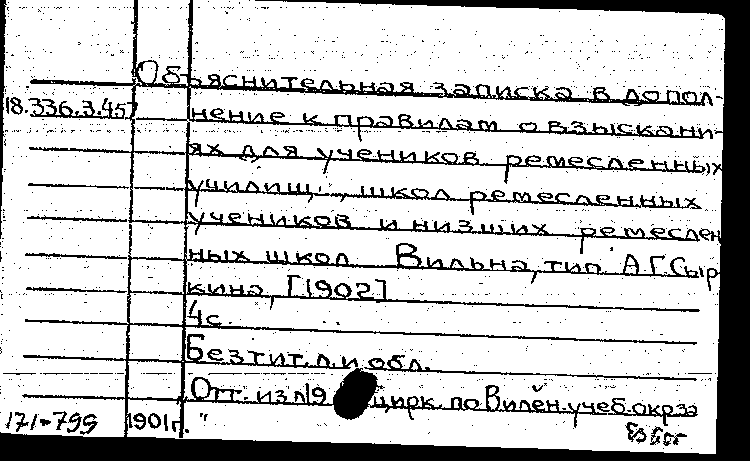 Объяснительная записка в допол-
18.336.3.457 нение к правилам о взыскани-
ях для учеников ремесленных
училищ, школ ремесленных
учеников и низших ремеслен
ных школ Вильна, тип. А.Г. Сыр
кина, [1902]
4с.
Без тит. л. и обл.
Отт. из №9 цирк. по Вилен. учеб. окр. за
171-799 1901г."